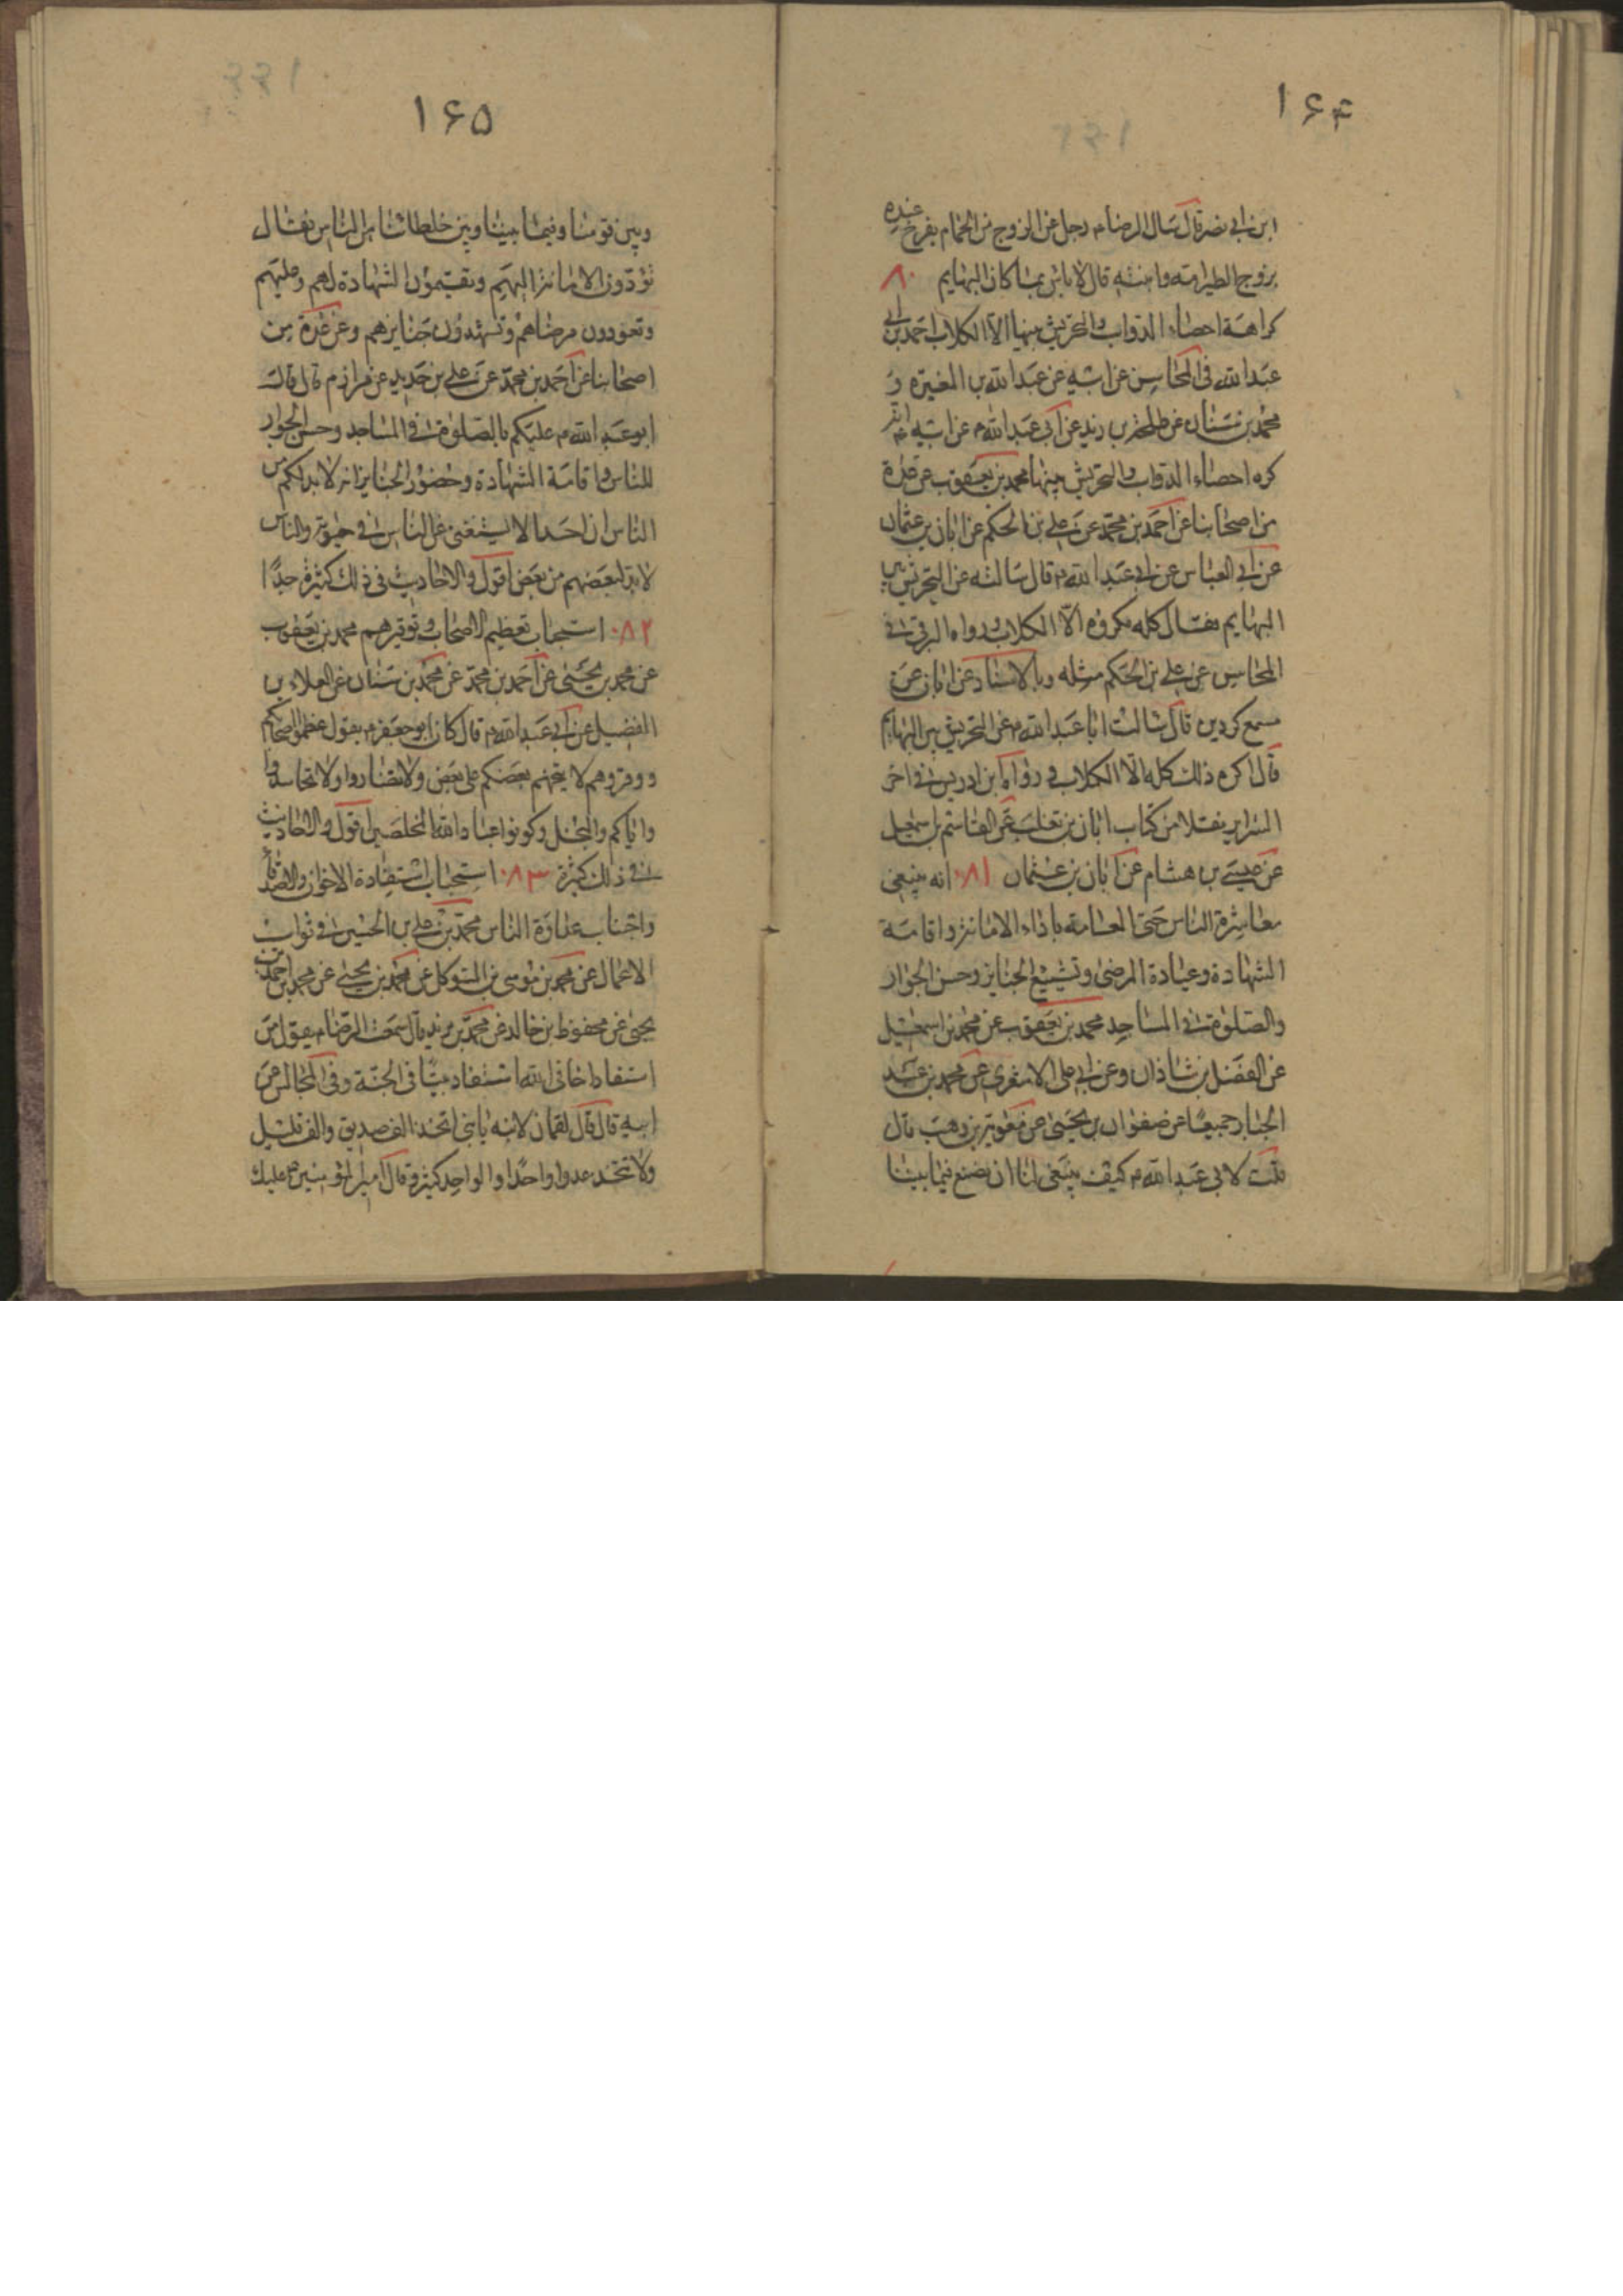 ۱۶۴
ابن ابی نصر قال سال الرضا م رجل عن الزوج من الحمام یفرخ عنده
یزوج الطیر امه وابنته قال لا باس بما کان البهایم ۸۰
کراهة احصاء الدواب والتحریش بینها الا الکلاب احمد بن ابی
عبد الله فی المحاسن عن ابیه عن عبد الله بن المغیره و
محمد بن سنان عن طلحه بن زید عن ابی عبد الله م عن ابیه م انه
کره احصاء الدواب والتحریش بینها محمد بن یعقوب عن عدة
من اصحابنا عن احمد بن محمد عن علی بن الحکم عن ابان بن عثمان
عن ابی العباس عن ابی عبد الله م قال سالته عن التحریش بین
البهایم فقال کله مکروه الا الکلاب ورواه البرقی فی
المحاسن عن علی بن الحکم مثله وبالاسناد عن ابان عن
مسمع کردین قال سالت ابا عبد الله م عن التحریش بین البهایم
قال اکره ذلک کله الا الکلاب ورواه ابن ادریس فی اخر
السرایر نقلا من کتاب ابان بن تغلب عن القاسم بن اسمعیل
عن عیسی بن هشام عن ابان بن عثمان ۸۱ انه ینبغی
معاشرة الناس حتی العامه باداء الامانة واقامة
الشهادة وعیادة المرضی وتشییع الجنایز وحسن الجوار
والصلوة فی المساجد محمد بن یعقوب عن محمد بن اسمعیل
عن الفضل بن شاذان وعن ابی علی الاشعری عن محمد بن عبد
الجبار جمیعا عن صفوان بن یحیی عن معویة بن وهب قال
قلت لابی عبد الله م کیف ینبغی لنا ان نصنع فیما بیننا
۱۶۵
وبین قومنا وفیما بیننا وبین خلطائنا من الناس فقال
تؤدون الامانة الیهم وتقیمون الشهادة لهم وعلیهم
وتعودون مرضاهم وتشهدون جنایزهم وعن عدة من
اصحابنا عن احمد بن محمد عن علی بن حدید عن مرازم قال قال
ابو عبد الله م علیکم بالصلوة فی المساجد وحسن الجوار
للناس واقامة الشهادة وحضور الجنایز انه لا بد لکم من
الناس ان احدا لا یستغنی عن الناس فی حیوته والناس
لا بد لبعضهم من بعض اقول والاحادیث فی ذلک کثیرة جدا
۸۲ استحباب تعظیم الاصحاب وتوقیرهم محمد بن یعقوب
عن محمد بن یحیی عن احمد بن محمد عن محمد بن سنان عن العلاء بن
الفضیل عن ابی عبد الله م قال کان ابو جعفر م یقول عظموا اصحابکم
ووقروهم لا یتجهم بعضکم علی بعض ولا تضاروا ولا تحاسدوا
وایاکم والبخل وکونوا عباد الله المخلصین اقول والاحادیث
فی ذلک کثیرة ۸۳ استحباب استفادة الاخوان والاصدقاء
واجتناب عداوة الناس محمد بن علی بن الحسین فی ثواب
الاعمال عن محمد بن موسی بن المتوکل عن محمد بن یحیی عن محمد بن احمد بن
یحیی عن محفوظ بن خالد عن محمد بن یزید قال سمعت الرضا م یقول من
استفاد اخا فی الله استفاد بیتا فی الجنة وفی المجالس عن
ابیه قال قال لقمان لابنه یا بنی اتخذ الف صدیق والف قلیل
ولا تتخذ عدوا واحدا والواحد کثیر وقال امیر المؤمنین م علیک